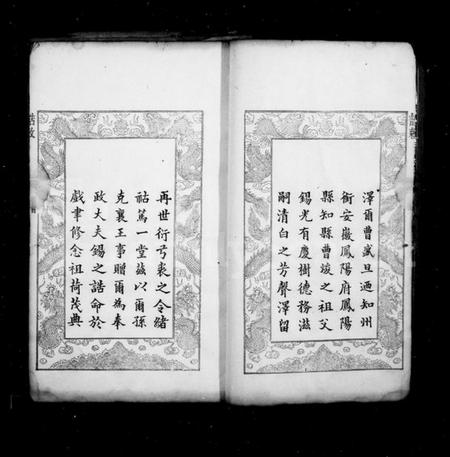 澤爾曹盛旦迺知州
銜安徽鳳陽府鳳陽
縣知縣曹竣之祖父
錫光有慶樹德務滋
嗣清白之芳聲澤留
再世衍弓裘之令緒
祜篤一堂茲以爾孫
克襄王事贈爾為奉
政大夫錫之誥命於
戲聿修念祖荷茂典